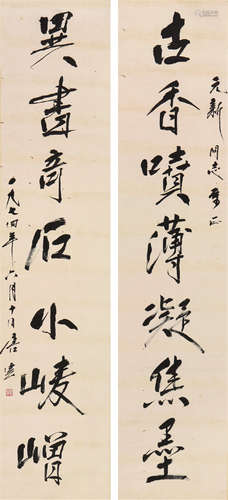 元新同志属正
古香噴薄凝焦墨
異書奇石小崚嶒
一九七四年六月十日唐雲